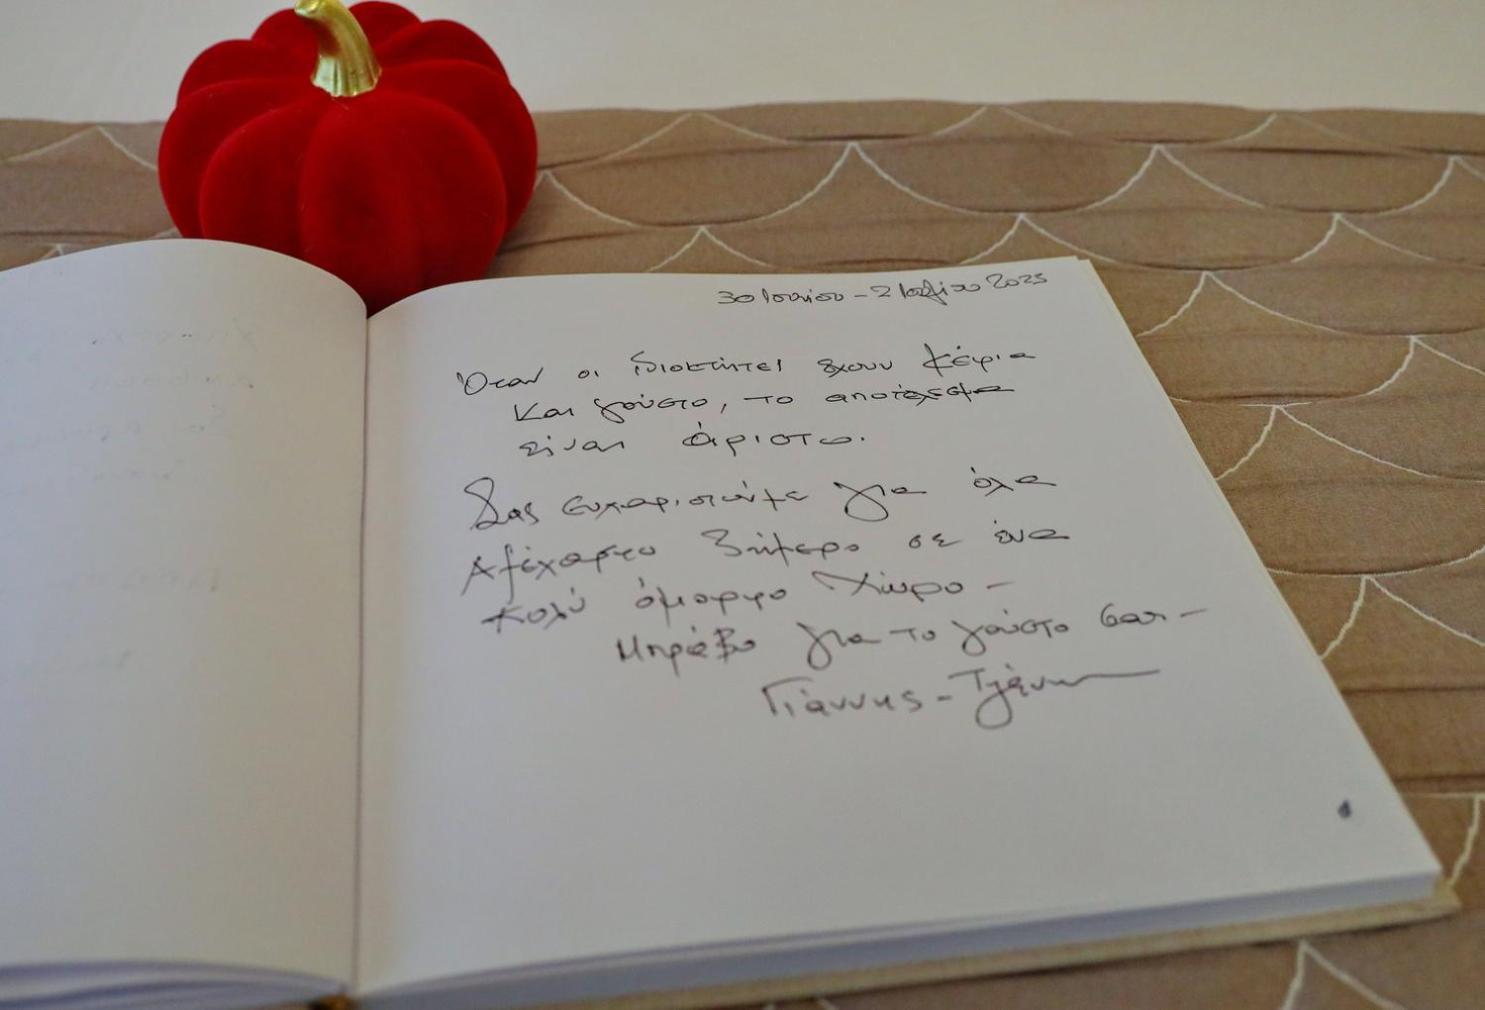 30 Ιουνίου - 2 Ιουλίου 2023
Όταν οι ιδιοκτήτες έχουν μεράκι
και γούστο, το αποτέλεσμα
είναι άριστο.
Σας ευχαριστούμε για όλα
Αξέχαστο 3ήμερο σε ένα
πολύ όμορφο χώρο -
Μπράβο για το γούστο σας -
Γιάννης -